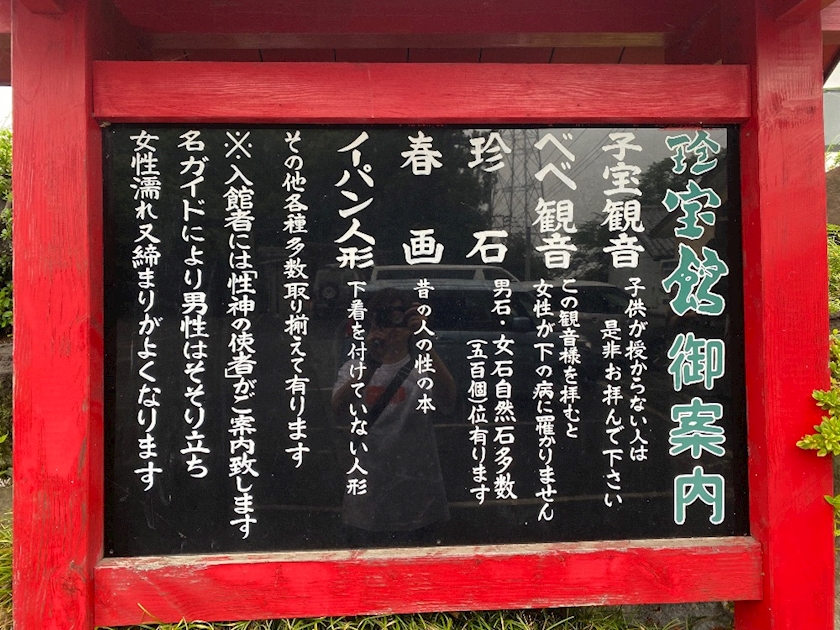 珍宝館御案内
子宝観音 子供が授からない人は
是非お拝んで下さい
べべ観音 この観音様を拝むと
女性が下の病に罹かりません
珍石 男石・女石自然石多数
(五百個位有ります
春画 昔の人の性の本
ノーパン人形 下着を付けていない人形
その他各種多数取り揃えて有ります
※入館者には「性神の使者」がご案内致します
名ガイドにより男性はそそり立ち
女性濡れ又締まりがよくなります